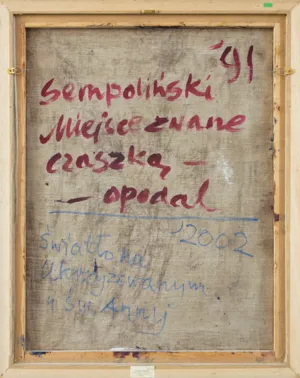 '91
Sempoliński
Miejsce zwane
czaszką –
– opodal
'2002
Światło na
Ukrzyżowanym
u Św. Annyj